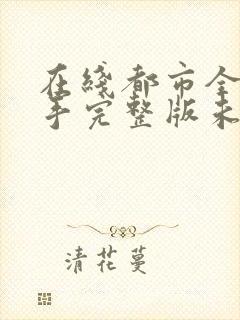 在线都市全
手完整版未
清花蔓